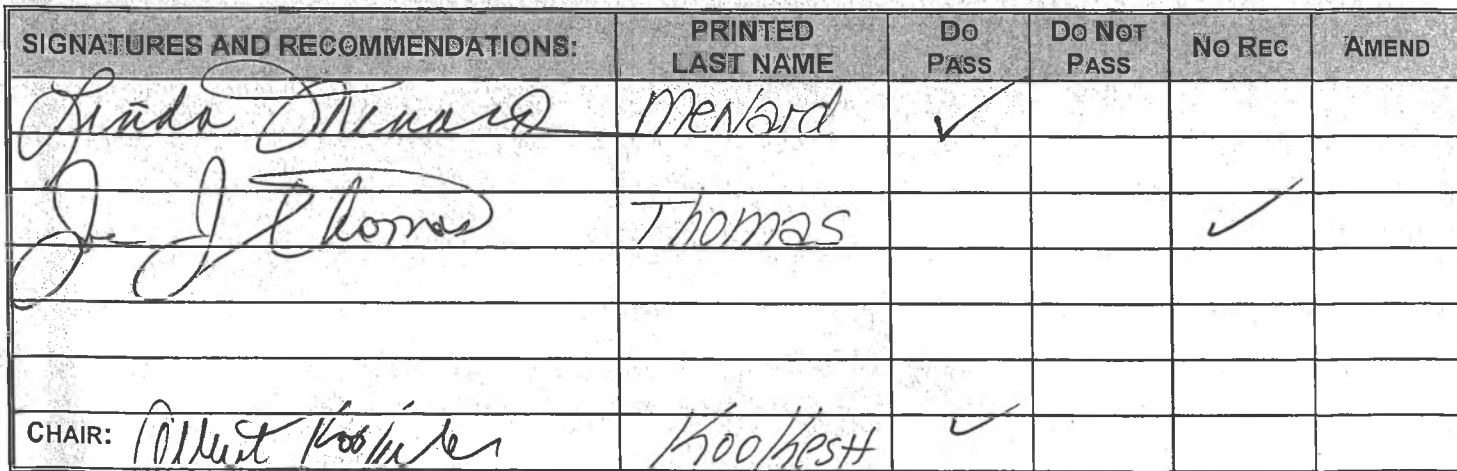 SIGNATURES AND RECOMMENDATIONS: PRINTED LAST NAME DO PASS DO NOT PASS NO REC AMEND
Linda Menard MeNard ✓
J Thomas Thomas ✓
CHAIR: Albert Kookesh KooKesH ✓